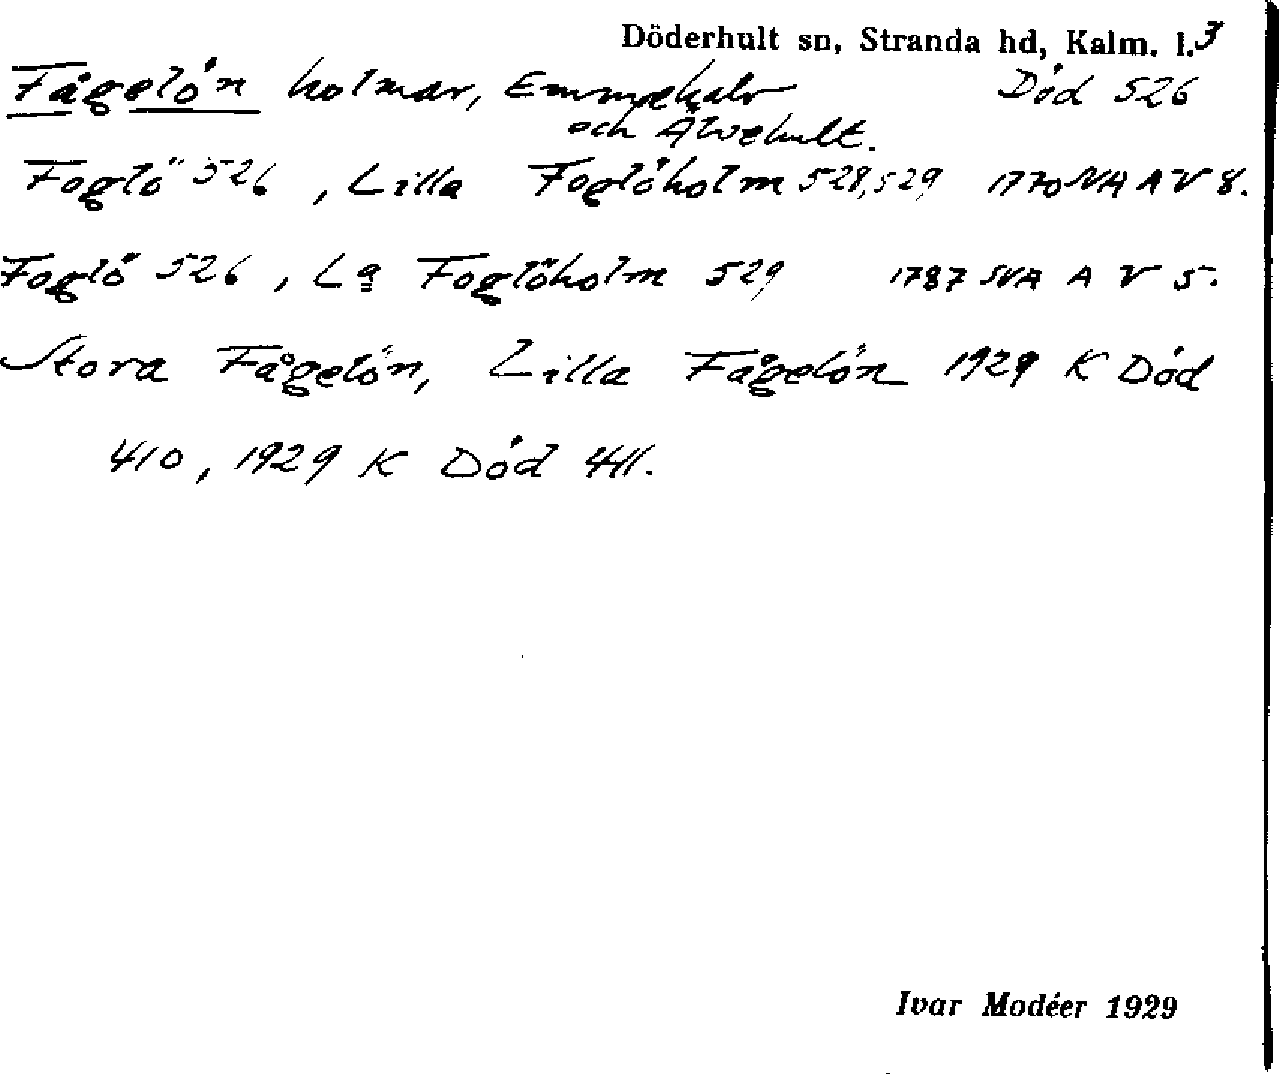 Döderhult sn, Stranda hd, Kalm. l. 3
Fågelön holmar, Emmekalv Död 526
och Älvehult.
Foglö 526, Lilla Foglöholm 528,529 1770 NA A V 8.
Foglö 526, La Foglöholm 529 1787 NA A V 5.
Stora Fågelön, Lilla Fågelön 1929 K Död
410, 1929 K Död 411.
Ivar Modéer 1929